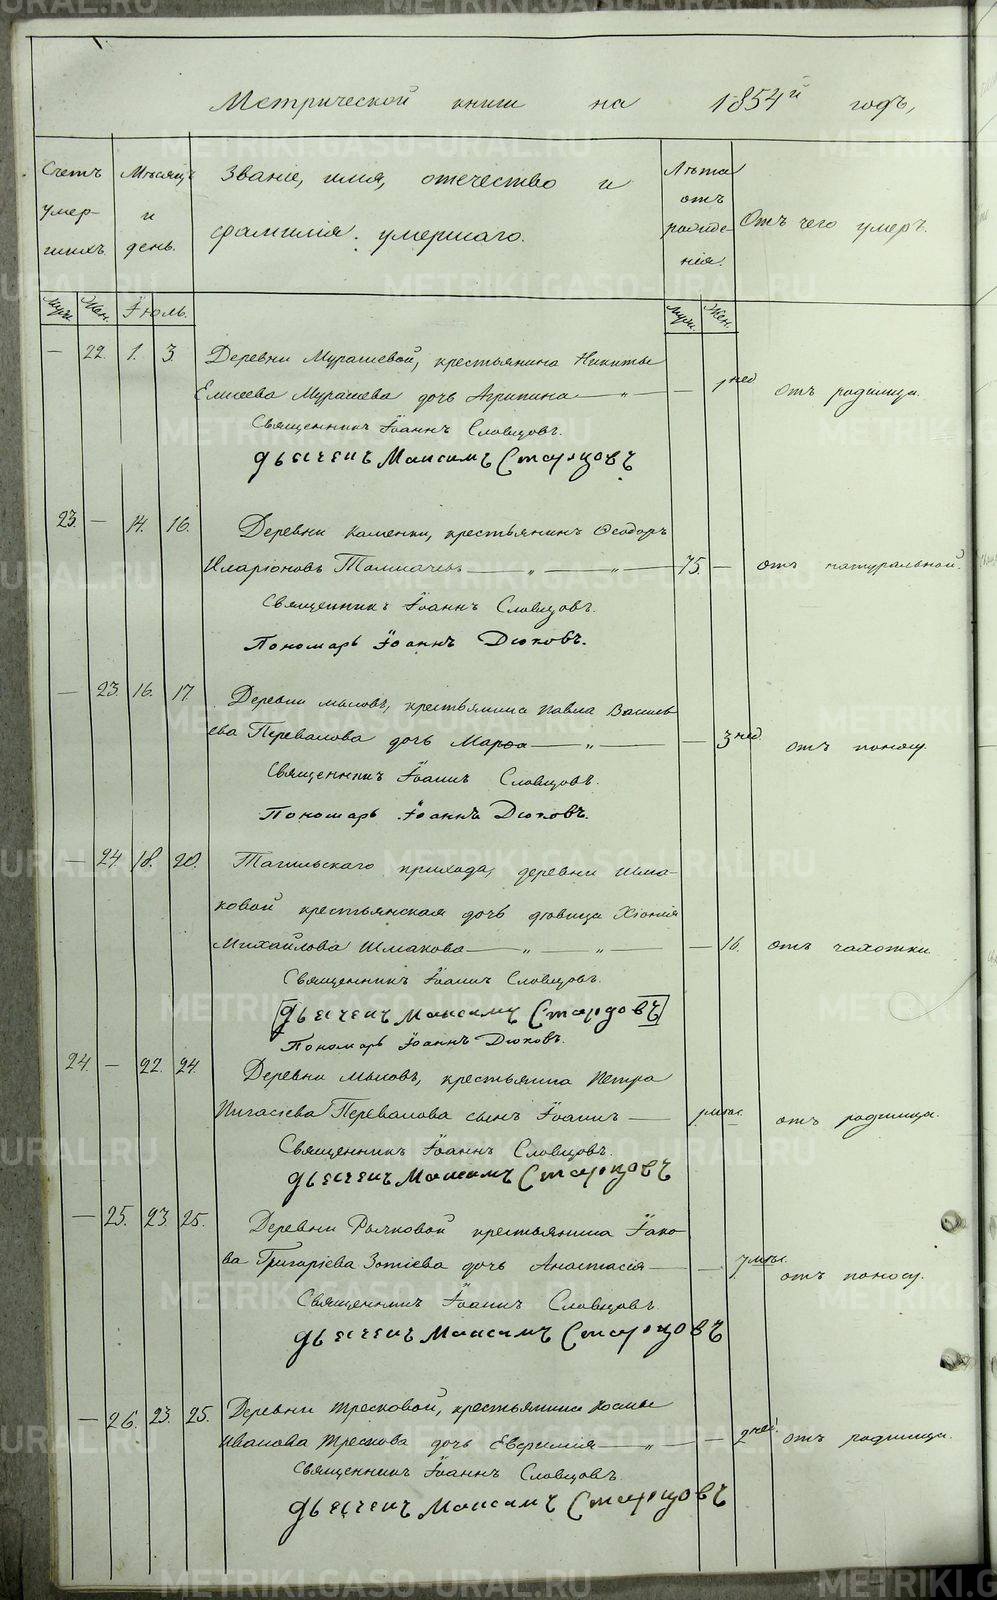 Метрической книги на 1854й годъ,
Счетъ умер- шихъ. Мѣсяцъ и день. Званіе, имя, отечество и фамилія умершаго. Лѣта отъ рожде- нія. Отъ чего умеръ.
Муж. Жен. Іюль. Муж. Жен.
— 22. 1. 3 Деревни Мурашевой, крестьянина Никиты
Елисеева Мурашева дочь Агрипина — „ — — 1 нед отъ родимца.
Священникъ Іоаннъ Словцовъ.
Дьячекъ Максимъ Старцовъ
23. — 14. 16. Деревни Каменки, крестьянинъ Ѳеодоръ
Иларіоновъ Толмачевъ — „ — „ — 75. — отъ натуральной.
Священникъ Іоаннъ Словцовъ.
Пономарь Іоаннъ Дюковъ.
— 23. 16. 17 Деревни Мысовъ, крестьянина Павла Василь
ева Перевалова дочь Марѳа — „ — — 3 нед отъ поносу
Священникъ Іоаннъ Словцовъ.
Пономарь Іоаннъ Дюковъ.
— 24. 18. 20. Тагильскаго прихода, деревни Шма-
ковой крестьянская дочь дѣвица Хіонія
Михайлова Шмакова — „ — „ — — 16. отъ чахотки.
Священникъ Іоаннъ Словцовъ.
[Дьячекъ Максимъ Старцовъ]
Пономарь Іоаннъ Дюковъ.
24. — 22. 24. Деревни Мысовъ, крестьянина Петра
Пигасіева Перевалова сынъ Іоаннъ — 1 мѣс. — отъ родимца.
Священникъ Іоаннъ Словцовъ.
Дьячекъ Максимъ Старцовъ
— 25. 23. 25. Деревни Рычковой крестьянина Іако-
ва Григоріева Зотіева дочь Анастасія — — 7 мѣс. отъ поносу.
Священникъ Іоаннъ Словцовъ.
Дьячекъ Максимъ Старцовъ
— 26. 23. 25. Деревни Тресковой, крестьянина Космы
Иванова Трескова дочь Евфимія — „ — — 2 нед. отъ родимца.
Священникъ Іоаннъ Словцовъ.
Дьячекъ Максимъ Старцовъ
METRIKI.GASO-URAL.RU